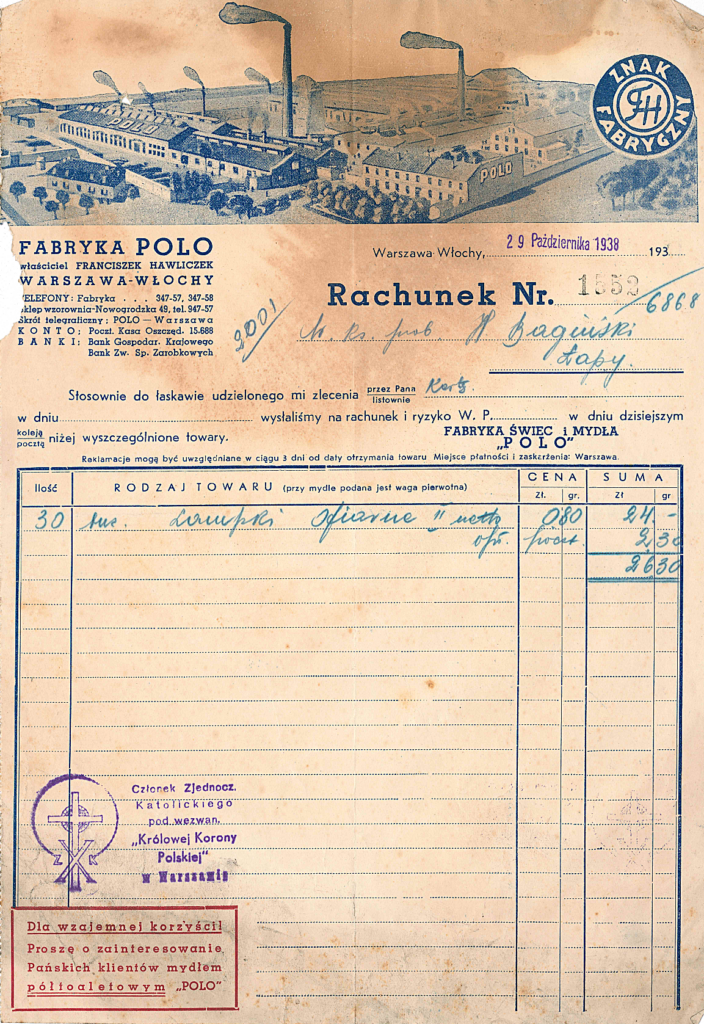 POLO
POLO
ZNAK
FH
FABRYCZNY
FABRYKA POLO
właściciel FRANCISZEK HAWLICZEK
WARSZAWA-WŁOCHY
TELEFONY: Fabryka . . . 347-57, 347-58
Sklep wzorownia-Nowogrodzka 49, tel. 947-57
Skrót telegraficzny: POLO — Warszawa
KONTO: Poczt. Kasa Oszczęd. 15.688
BANKI: Bank Gospodar. Krajowego
Bank Zw. Sp. Zarobkowych
Warszawa-Włochy, 29 Października 1938 193
Rachunek Nr. 1552
6868
2001
W. ks. prob. H Bagiński
Łapy.
Stosownie do łaskawie udzielonego mi zlecenia przez Pana
listownie
w dniu wysłaliśmy na rachunek i ryzyko W. P. w dniu dzisiejszym
koleją
pocztą niżej wyszczególnione towary.
FABRYKA ŚWIEC i MYDŁA
„POLO"
Reklamacje mogą być uwzględniane w ciągu 3 dni od daty otrzymania towaru Miejsce płatności i zaskarżenia: Warszawa.
Ilość RODZAJ TOWARU (przy mydle podana jest waga pierwotna) CENA SUMA
Zł. gr. Zł gr
30 Lampki Ofiarne II netto 080 24.-
opł. poczt. 2,30
2630
Członek Zjednocz.
Katolickiego
pod wezwan.
„Królowej Korony
Polskiej"
w Warszawie
Z K
Dla wzajemnej korzyści!
Proszę o zainteresowanie
Pańskich klientów mydłem
półtoaletowym „POLO"